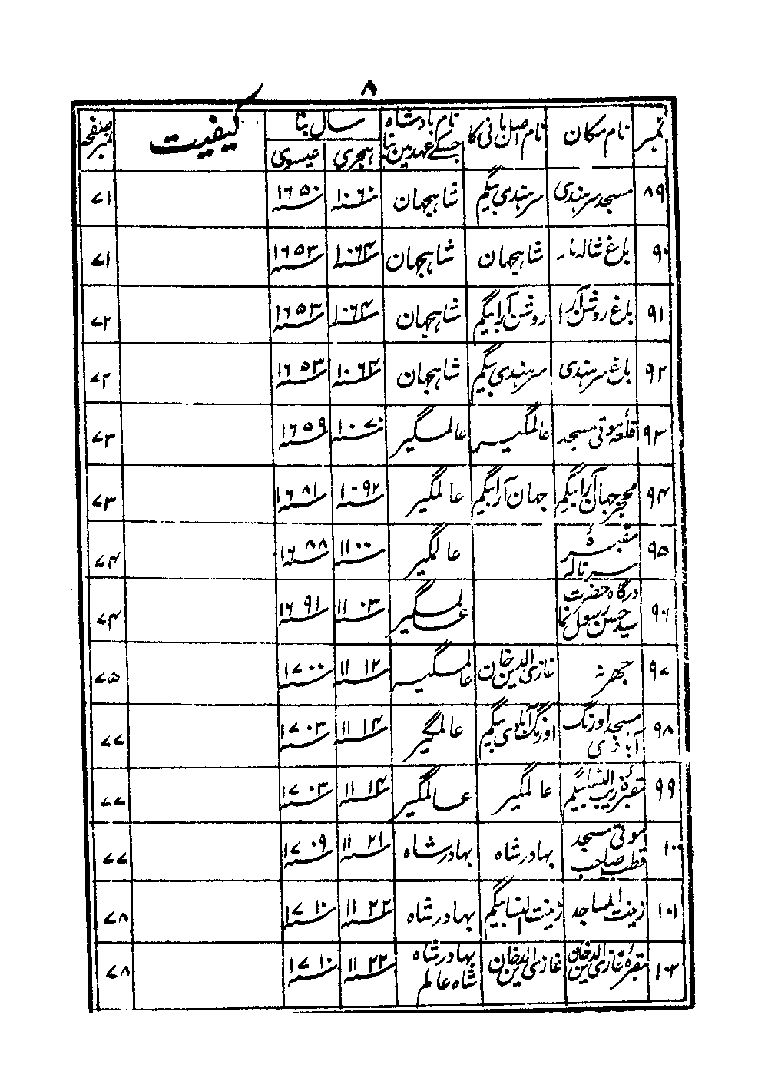 ۸
نمبر | نام مکان | نام اصل بانی کا | نام بادشاہ جسکے عہد مین بنا | سال بنا ہجری | سال بنا عیسوی | کیفیت | نمبر صفحہ
۸۹ | مسجد سرہندی | سرہندی بیگم | شاہجہان | ۱۰۶۰ | ۱۶۵۰ | | ۷۱
۹۰ | باغ شالامار | شاہجہان | شاہجہان | ۱۰۶۴ | ۱۶۵۳ | | ۷۱
۹۱ | باغ روشن آرا | روشن آرا بیگم | شاہجہان | ۱۰۶۴ | ۱۶۵۳ | | ۷۲
۹۲ | باغ سرہندی | سرہندی بیگم | شاہجہان | ۱۰۶۴ | ۱۶۵۳ | | ۷۲
۹۳ | موتی مسجد قلعہ | عالمگیر | عالمگیر | ۱۰۷۰ | ۱۶۵۹ | | ۷۳
۹۴ | محجر جہان آرا بیگم | جہان آرا بیگم | عالمگیر | ۱۰۹۲ | ۱۶۸۱ | | ۷۳
۹۵ | مقبرۂ سرنالہ | | عالمگیر | ۱۱۰۰ | ۱۶۸۸ | | ۷۴
۹۶ | درگاہ حضرت سید حسن رسول نما | | عالمگیر | ۱۱۰۳ | ۱۶۹۱ | | ۷۴
۹۷ | جھرنہ | غازی الدین خان | عالمگیر | ۱۱۱۲ | ۱۷۰۰ | | ۷۵
۹۸ | مسجد اورنگ آبادی | اورنگ آبادی بیگم | عالمگیر | ۱۱۱۴ | ۱۷۰۳ | | ۷۷
۹۹ | مقبرۂ زیب النسا بیگم | عالمگیر | عالمگیر | ۱۱۱۴ | ۱۷۰۳ | | ۷۷
۱۰۰ | موتی مسجد قطب صاحب | بہادر شاہ | بہادر شاہ | ۱۱۲۱ | ۱۷۰۹ | | ۷۷
۱۰۱ | زینت المساجد | زینت النسا بیگم | بہادر شاہ | ۱۱۲۲ | ۱۷۱۰ | | ۷۸
۱۰۲ | مقبرۂ غازی الدین خان | غازی الدین خان | بہادر شاہ شاہ عالم | ۱۱۲۲ | ۱۷۱۰ | | ۷۸